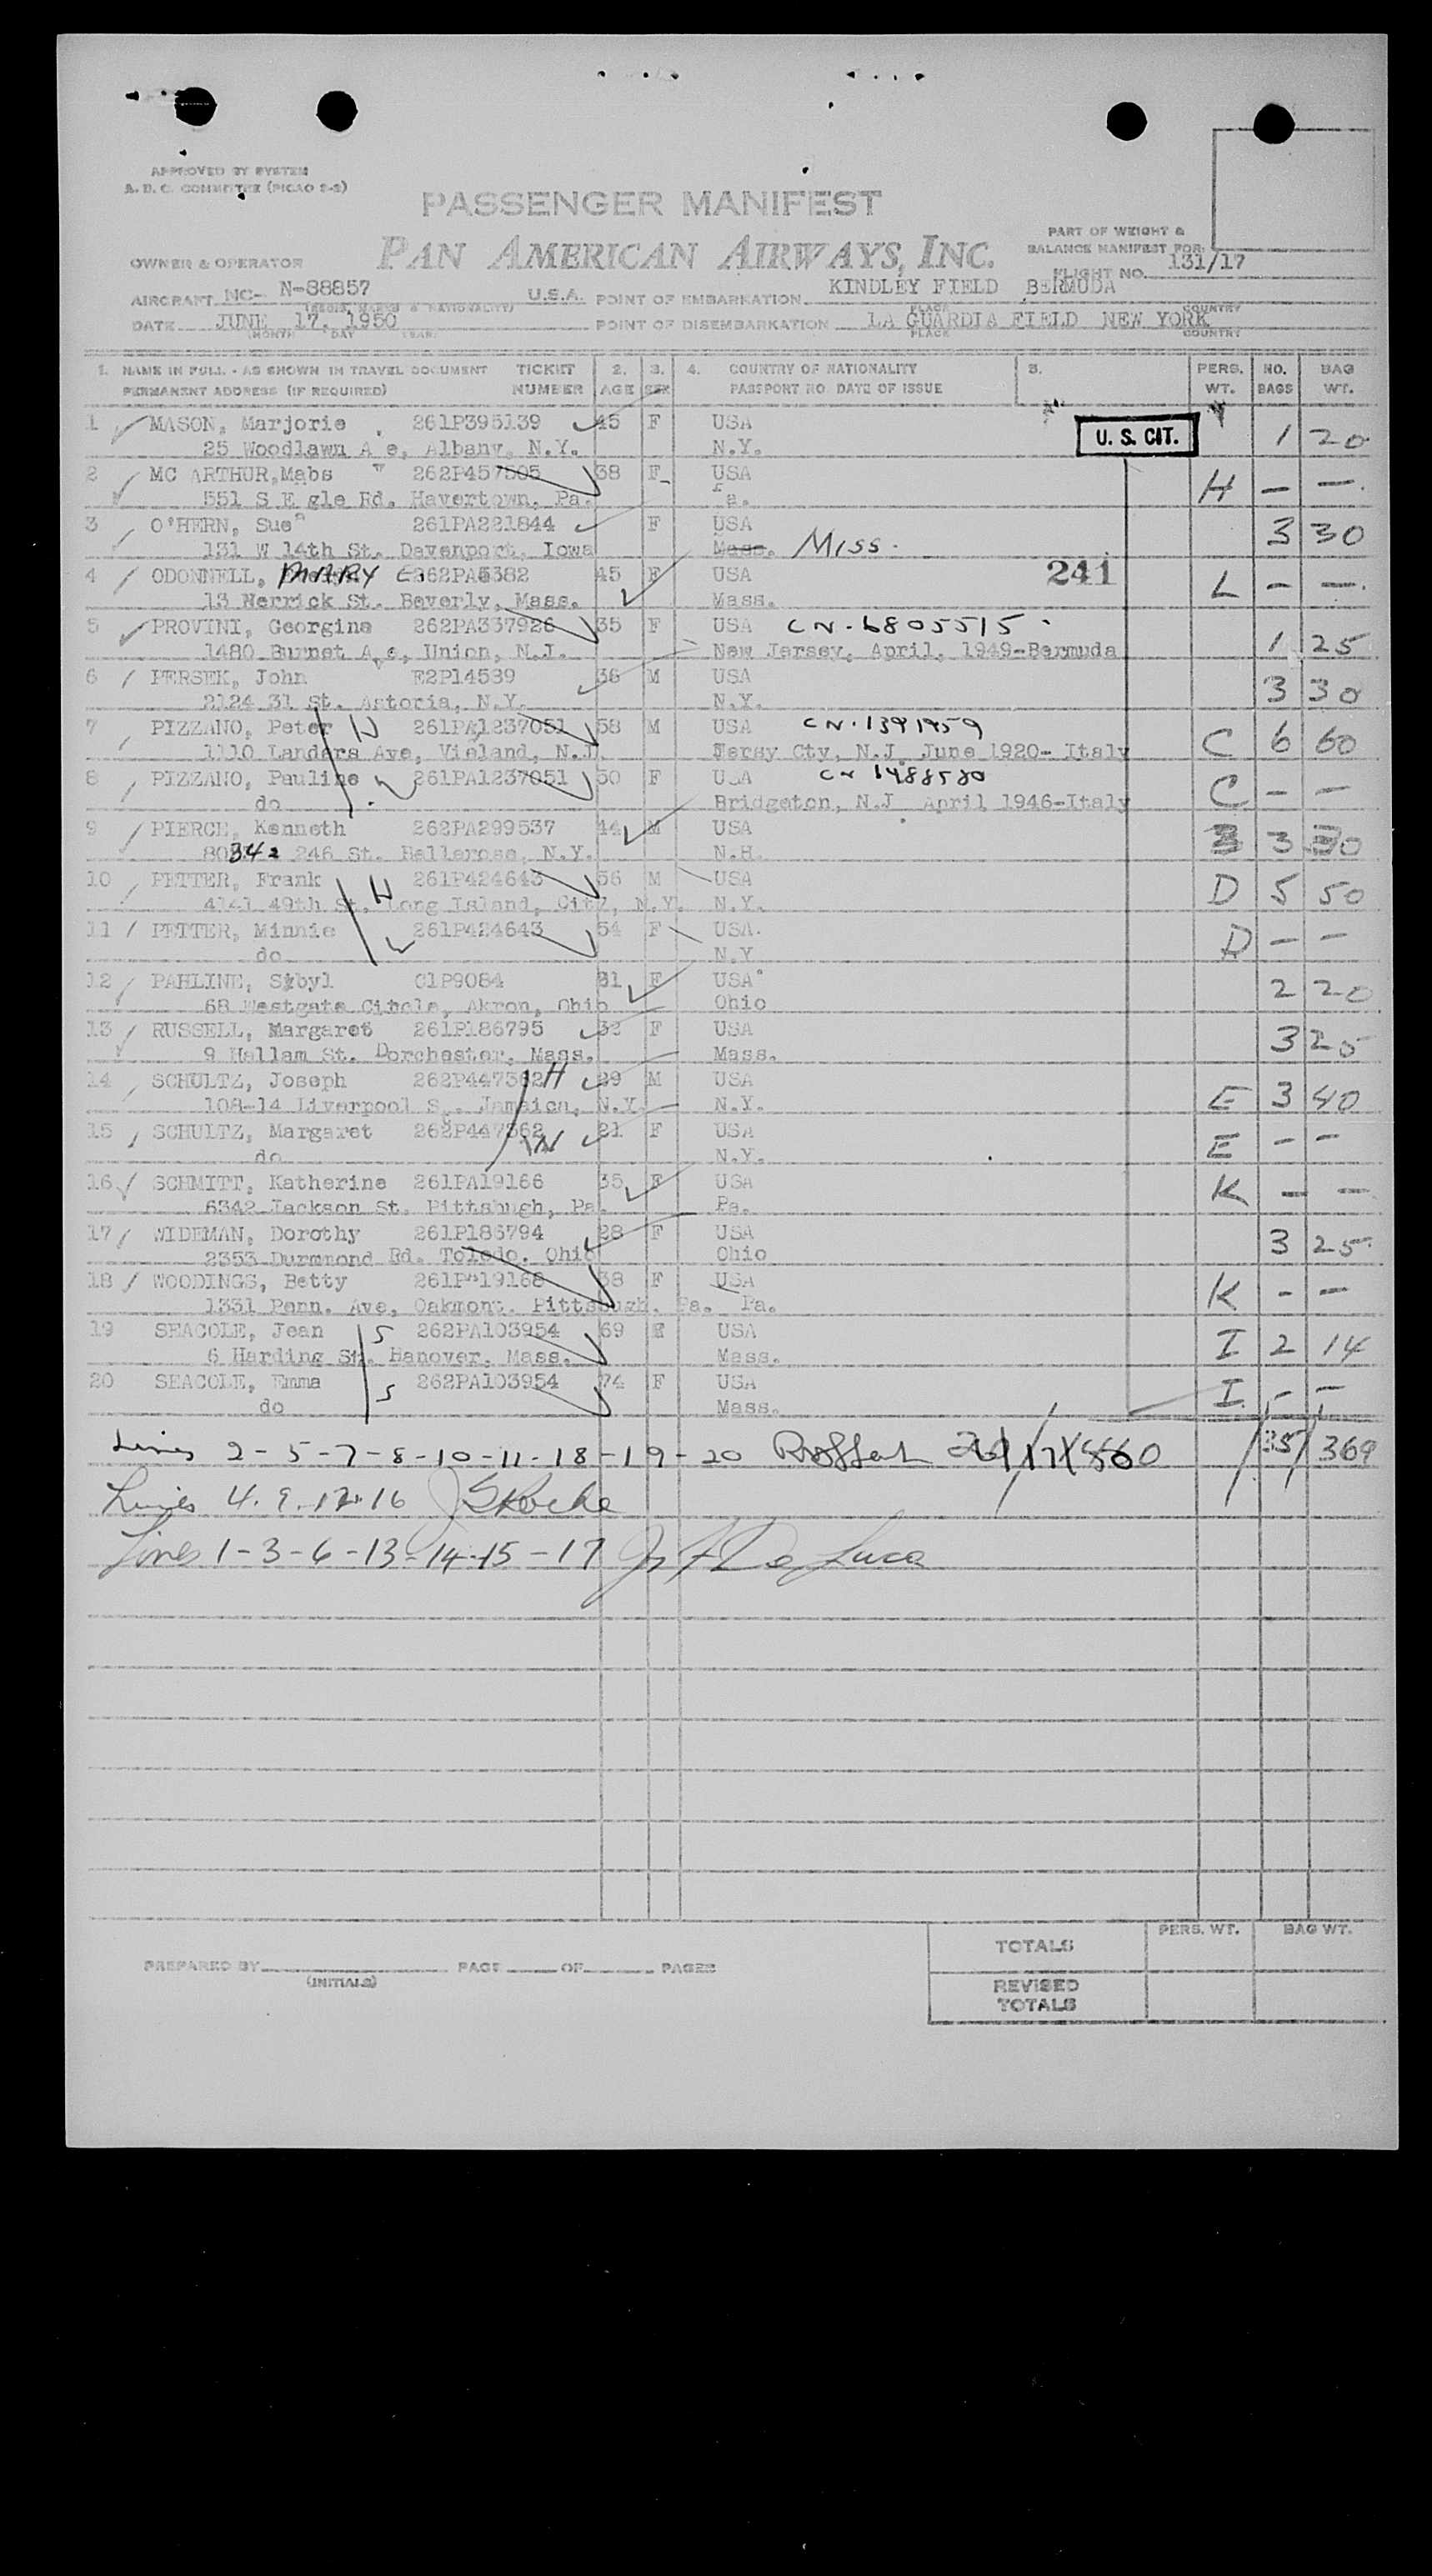 APPROVED BY SYSTEM
A. D. C. COMMITTEE (PICAO 2-2)
PASSENGER MANIFEST
PAN AMERICAN AIRWAYS, INC.
PART OF WEIGHT &
BALANCE MANIFEST FOR:
OWNER & OPERATOR
FLIGHT NO. 131/17
AIRCRAFT NC- N-88857 U.S.A. POINT OF EMBARKATION KINDLEY FIELD BERMUDA
(REGIS. MARKS & NATIONALITY) PLACE COUNTRY
DATE JUNE 17, 1950 POINT OF DISEMBARKATION LA GUARDIA FIELD NEW YORK
(MONTH DAY YEAR) PLACE COUNTRY
1. NAME IN FULL - AS SHOWN IN TRAVEL DOCUMENT TICKET 2. 3. 4. COUNTRY OF NATIONALITY 5. PERS. NO. BAG
PERMANENT ADDRESS (IF REQUIRED) NUMBER AGE SEX PASSPORT NO. DATE OF ISSUE WT. BAGS WT.
1 MASON, Marjorie 261P395139 45 F USA
25 Woodlawn A e, Albany, N.Y. N.Y. U. S. CIT. 1 20
2 MC ARTHUR,Mabs 262P457505 38 F USA
551 S E gle Rd. Havertown, Pa. a. H — —
3 O'HERN, Sue 261PA221844 F USA
131 W 14th St. Davenport, Iowa Mass. Miss. 3 30
4 ODONNELL, MARY E. 262PA5382 45 F USA 241
13 Herrick St. Beverly, Mass. Mass. L — —
5 PROVINI, Georgina 262PA337926 35 F USA CN-6805515
1480 Burnet Ave, Union, N.J. New Jersey, April, 1949-Bermuda 1 25
6 PERSEK, John E2P14539 36 M USA
2124 31 St. Astoria, N.Y. N.Y. 3 30
7 PIZZANO, Peter H 261PA1237051 58 M USA CN-1391959
1110 Landera Ave, Vieland, N.J. Jersy Cty, N.J. June 1920- Italy C 6 60
8 PIZZANO, Pauline W 261PA1237051 50 F USA CN 1488580
do Bridgeton, N.J April 1946-Italy C — —
9 PIERCE, Kenneth 262PA299537 44 M USA
246 St. Bellerose, N.Y. N.H. 3 30
10 PETTER, Frank H 261P424643 56 M USA
4141 49th St. Long Island, City, N.Y. N.Y. D 5 50
11 PETTER, Minnie W 261P424643 54 F USA.
do N.Y D — —
12 PAHLINE, Sybyl 01P9084 31 F USA
68 Westgate Circle, Akron, Ohio Ohio 2 20
13 RUSSELL, Margaret 261P186795 32 F USA
9 Hallam St. Dorchester, Mass. Mass. 3 25
14 SCHULTZ, Joseph 262P447362 H 29 M USA
108-14 Liverpool S . Jamaica, N.Y. N.Y. E 3 40
15 SCHULTZ, Margaret 262P447362 W 21 F USA
do N.Y. E — —
16 SCHMITT, Katherine 261PA19166 35 F USA
6342 Jackson St. Pittsbugh, Pa. Pa. K — —
17 WIDEMAN, Dorothy 261P186794 28 F USA
2353 Durmmond Rd. Toledo. Ohio Ohio 3 25
18 WOODINGS, Betty 261P 19168 38 F USA
1331 Penn. Ave, Oakmont. Pittsbugh. Pa. Pa. K - —
19 SEACOLE, Jean S 262PA103954 69 F USA
6 Harding St. Hanover, Mass. Mass. I 2 14
20 SEACOLE, Emma S 262PA103954 74 F USA
do Mass. I - -
Lines 2-5-7-8-10-11-18-19-20 35 369
Lines 4. 9. 12. 16
Lines 1-3-6-13-14-15-17 De Luca
PREPARED BY PAGE OF PAGES
(INITIALS)
PERS. WT. BAG WT.
TOTALS
REVISED
TOTALS